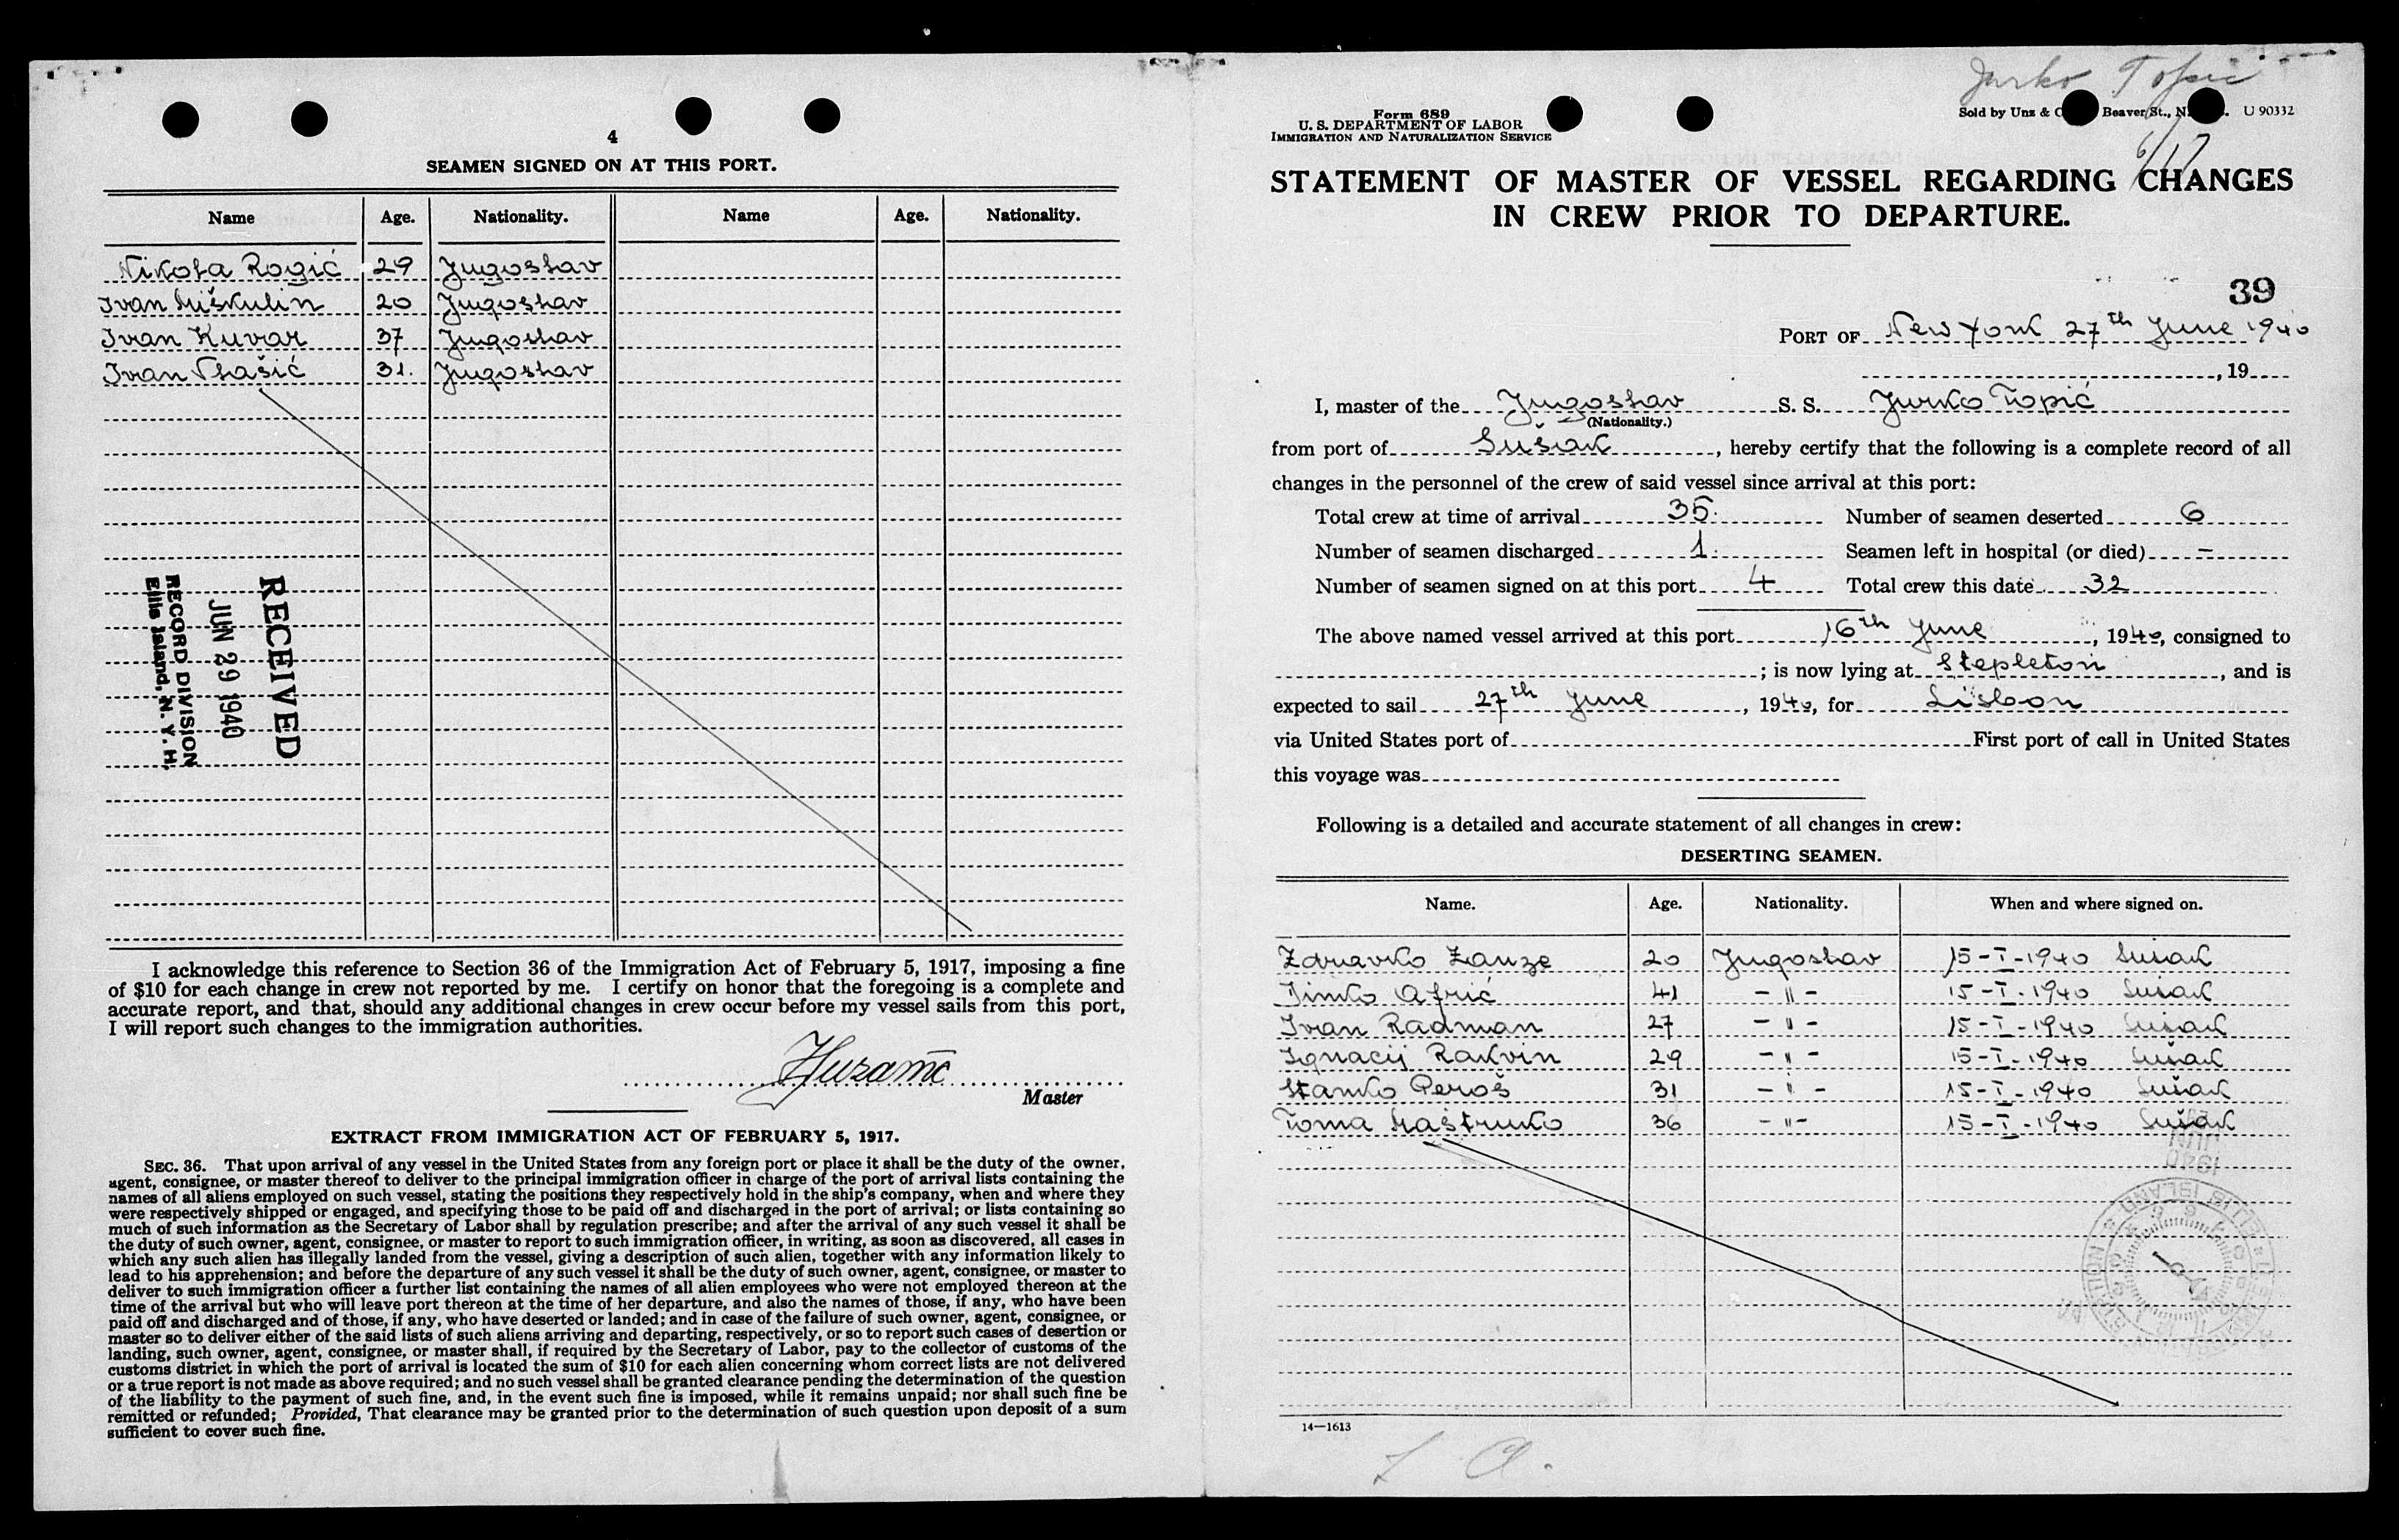 4
SEAMEN SIGNED ON AT THIS PORT.
Name Age. Nationality. Name Age. Nationality.
Nikola Rogić 29 Jugoslav
Ivan Miškulin 20 Jugoslav
Ivan Kuvar 37 Jugoslav
Ivan Vlašić 31. Jugoslav
RECEIVED
JUN 29 1940
RECORD DIVISION
Ellis Island, N. Y. H.
I acknowledge this reference to Section 36 of the Immigration Act of February 5, 1917, imposing a fine
of $10 for each change in crew not reported by me. I certify on honor that the foregoing is a complete and
accurate report, and that, should any additional changes in crew occur before my vessel sails from this port,
I will report such changes to the immigration authorities.
Master
EXTRACT FROM IMMIGRATION ACT OF FEBRUARY 5, 1917.
SEC. 36. That upon arrival of any vessel in the United States from any foreign port or place it shall be the duty of the owner,
agent, consignee, or master thereof to deliver to the principal immigration officer in charge of the port of arrival lists containing the
names of all aliens employed on such vessel, stating the positions they respectively hold in the ship's company, when and where they
were respectively shipped or engaged, and specifying those to be paid off and discharged in the port of arrival; or lists containing so
much of such information as the Secretary of Labor shall by regulation prescribe; and after the arrival of any such vessel it shall be
the duty of such owner, agent, consignee, or master to report to such immigration officer, in writing, as soon as discovered, all cases in
which any such alien has illegally landed from the vessel, giving a description of such alien, together with any information likely to
lead to his apprehension; and before the departure of any such vessel it shall be the duty of such owner, agent, consignee, or master to
deliver to such immigration officer a further list containing the names of all alien employees who were not employed thereon at the
time of the arrival but who will leave port thereon at the time of her departure, and also the names of those, if any, who have been
paid off and discharged and of those, if any, who have deserted or landed; and in case of the failure of such owner, agent, consignee, or
master so to deliver either of the said lists of such aliens arriving and departing, respectively, or so to report such cases of desertion or
landing, such owner, agent, consignee, or master shall, if required by the Secretary of Labor, pay to the collector of customs of the
customs district in which the port of arrival is located the sum of $10 for each alien concerning whom correct lists are not delivered
or a true report is not made as above required; and no such vessel shall be granted clearance pending the determination of the question
of the liability to the payment of such fine, and, in the event such fine is imposed, while it remains unpaid; nor shall such fine be
remitted or refunded; Provided, That clearance may be granted prior to the determination of such question upon deposit of a sum
sufficient to cover such fine.
Jurko Topic
6/17
Form 689
U. S. DEPARTMENT OF LABOR
IMMIGRATION AND NATURALIZATION SERVICE
Sold by Unz & C Beaver St., N. U 90332
STATEMENT OF MASTER OF VESSEL REGARDING CHANGES
IN CREW PRIOR TO DEPARTURE.
39
PORT OF New York 27th June 1940
, 19
I, master of the Jugoslav S. S. Jurko Topić
(Nationality.)
from port of Sušak, hereby certify that the following is a complete record of all
changes in the personnel of the crew of said vessel since arrival at this port:
Total crew at time of arrival 35. Number of seamen deserted 6
Number of seamen discharged 1. Seamen left in hospital (or died) -
Number of seamen signed on at this port 4 Total crew this date 32
The above named vessel arrived at this port 16th June, 1940, consigned to
; is now lying at Stepleton, and is
expected to sail 27th June, 1940, for Lisbon
via United States port of First port of call in United States
this voyage was
Following is a detailed and accurate statement of all changes in crew:
DESERTING SEAMEN.
Name. Age. Nationality. When and where signed on.
Zdravko Zanze 20 Jugoslav 15-I-1940 Sušak
Šimko Afrić 41 - " - 15-I-1940 Sušak
Ivan Radman 27 - " - 15-I-1940 Sušak
Ignacij Rakvin 29 - " - 15-I-1940 Sušak
Stanko Peroš 31 - " - 15-I-1940 Sušak
Toma Maštruko 36 - " - 15-I-1940 Sušak
14—1613